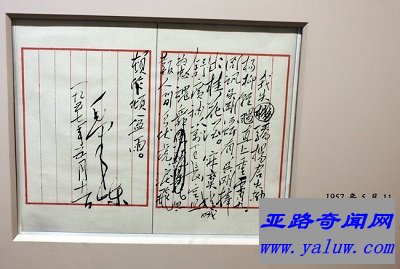 我失杨君失柳
杨柳轻飏直上重霄九
问讯吴刚何所有吴刚捧
出桂花酒。寂寞嫦娥
舒广袖万里长空且为
忠魂舞
报人间伏虎泪飞
顿作倾盆雨。
毛泽东
一九五七年五月十一日
1957 年 5 月 11
亚路奇闻网
www.yaluw.com